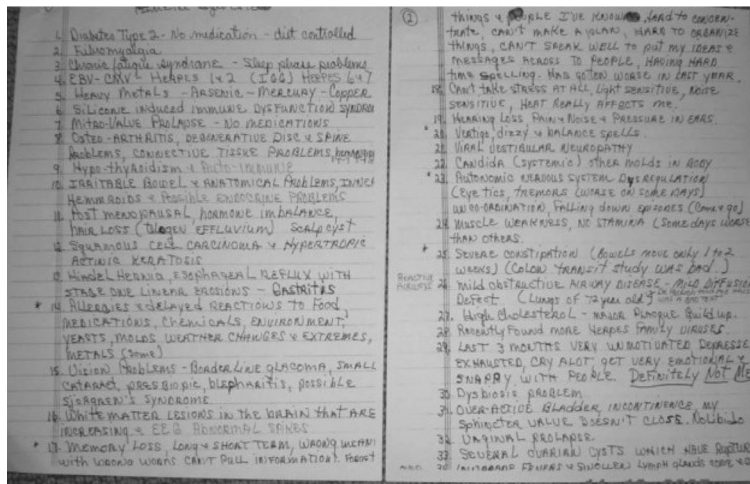 1. Diabetes Type 2 - No medication - diet controlled
2. Fibromyalgia
3. Chronic fatigue syndrome - Sleep phase problems
4. EBV - CMV - Herpes 1 & 2 (IGG) Herpes 6 & 7
5. Heavy Metals - Arsenic - Mercury - Copper
6. Silicone induced immune DYSFUNCTION SYNDROM
7. Mitro-Valve Prolapse - No medications
8. Osteo-ARTHRITIS, DEGENERATIVE DISC & SPINE
Problems, CONNECTIVE TISSUE PROBLEMS,
9. Hypo-thyroidism & Auto-immune
10. IRRITABLE BOWEL & ANATOMICAL PROBLEMS, INNER
Hemmroids & Possible ENDOCRINE PROBLEMS
11. Post menopausal, hormone imbalance,
HAIR LOSS (telogen EFFLUVIUM) Scalp cyst
12. Squamous Cell CARCINOMA & HYPERTROPIC
ACTINIC KERATOSIS
13. Hiadel Hernia, Esophageal REFLUX WITH
STAGE ONE LINEAR EROSIONS - GASTRITIS
* 14. Allergies & delayed REACTIONS TO Food,
MEDICATIONS, CHEMICALS, ENVIRONMENT,
YEASTS, MOLDS, WEATHER CHANGES & EXTREMES,
METALS (some)
15. Vision Problems - BORDERLINE glacoma, SMALL
CATARACT, PRESBIOPIC, blepharitis, possible
SJORGREN'S SYNDROME.
16. White MATTER LESIONS IN the BRAIN that ARE
INCREASING & EEG ABNORMAL SPIKES
* 17. Memory Loss, Long & SHORT TERM, WRONG MEANI
with WRONG WORDS CAN'T PULL INFORMATION. Forget
2
things & PEOPLE I'VE KNOWN, HARD to CONCEN-
TRATE, CAN'T MAKE A PLAN, HARD TO ORGANIZE
THINGS, CAN'T SPEAK WELL to put my IDEAS &
MESSAGES ACROSS TO PEOPLE, HAVING HARD
TIME SPELLING. HAS GOTTEN WORSE IN LAST YEAR.
18. CAN'T TAKE STRESS AT ALL, Light SENSITIVE, NOISE
SENSITIVE, HEAT REALLY AFFECTS ME.
19. HEARING LOSS, PAIN & NOISE & PRESSURE IN EARS.
* 20. Vertigo, dizzy & balance spells.
21. VIRAL VESTIBULAR NEUROPATHY
22. CANDIDA (SYSTEMIC) other molds in BODY
* 23. Autonomic NERVOUS SYSTEM DYSREGULATION
(EYE tics, TREMORS (WORSE ON SOME DAYS)
UNCO-ORDINATION, FALLING DOWN EPISODES (Come & go)
24. MUSCLE WEAKNESS, NO STAMINA (Some days WORSE
THAN OTHERS.
* 25. SEVERE CONSTIPATION (BOWELS MOVE ONLY 1 to 2
WEEKS) (Colon TRANSIT STUDY WAS bad.)
REACTIVE AIRWAYS 26. Mild OBSTRUCTIVE AIRWAY DISEASE - MILD DIFFUSION
Defect (Lungs of 72 year old)
27. High Cholesterol - MAJOR Plaque Build up.
28. Recently Found MORE HERPES FAMILY VIRUSES.
29. LAST 3 MONTHS VERY UNMOTIVATED DEPRESSE
EXHAUSTED, CRY ALOT, GET VERY EMOTIONAL &
SNAPPY, WITH PEOPLE. DEFINITELY NOT ME
30. Dysbiosis PROBLEM.
31. OVER-ACTIVE BLADDER, INCONTINENCE, MY
SPHINCTER VALVE DOESN'T CLOSE. No Libido
32. VAGINAL PROLAPSE.
33. SEVERAL OVARIAN CYSTS WHICH HAVE RUPTUR
FEVERS & SWOLLEN LYMPH glands